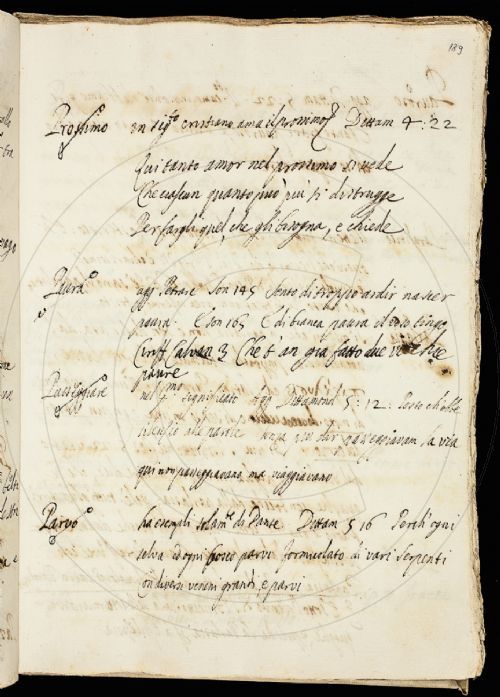 189
Prossimo in sig.to cristiano ama il prossimo Dittam 4:22
Qui tanto amor nel prossimo si vede
Che ciascun quanto può più si distrugge
Per fargli quel, che gli bisogna, e chiede
Paura agg Petrar Son 145 Sento di troppo ardir nascer
paura. E Son 165 E di bianca paura il viso tinge
Ciriff. Calvan 3 Che t'an già fatto due
paure
Passeggiare nel p.mo significato agg Dittamond 5:12:
alle parole dir passeggiavam la via
qui non passeggiavano ma viaggiavano
Parvo ha esempli solam.te di Dante Dittam 5 16 Perch'ogni
selva ed ogni parvi formicolato di vari serpenti
con diversi veneni grandi, e parvi